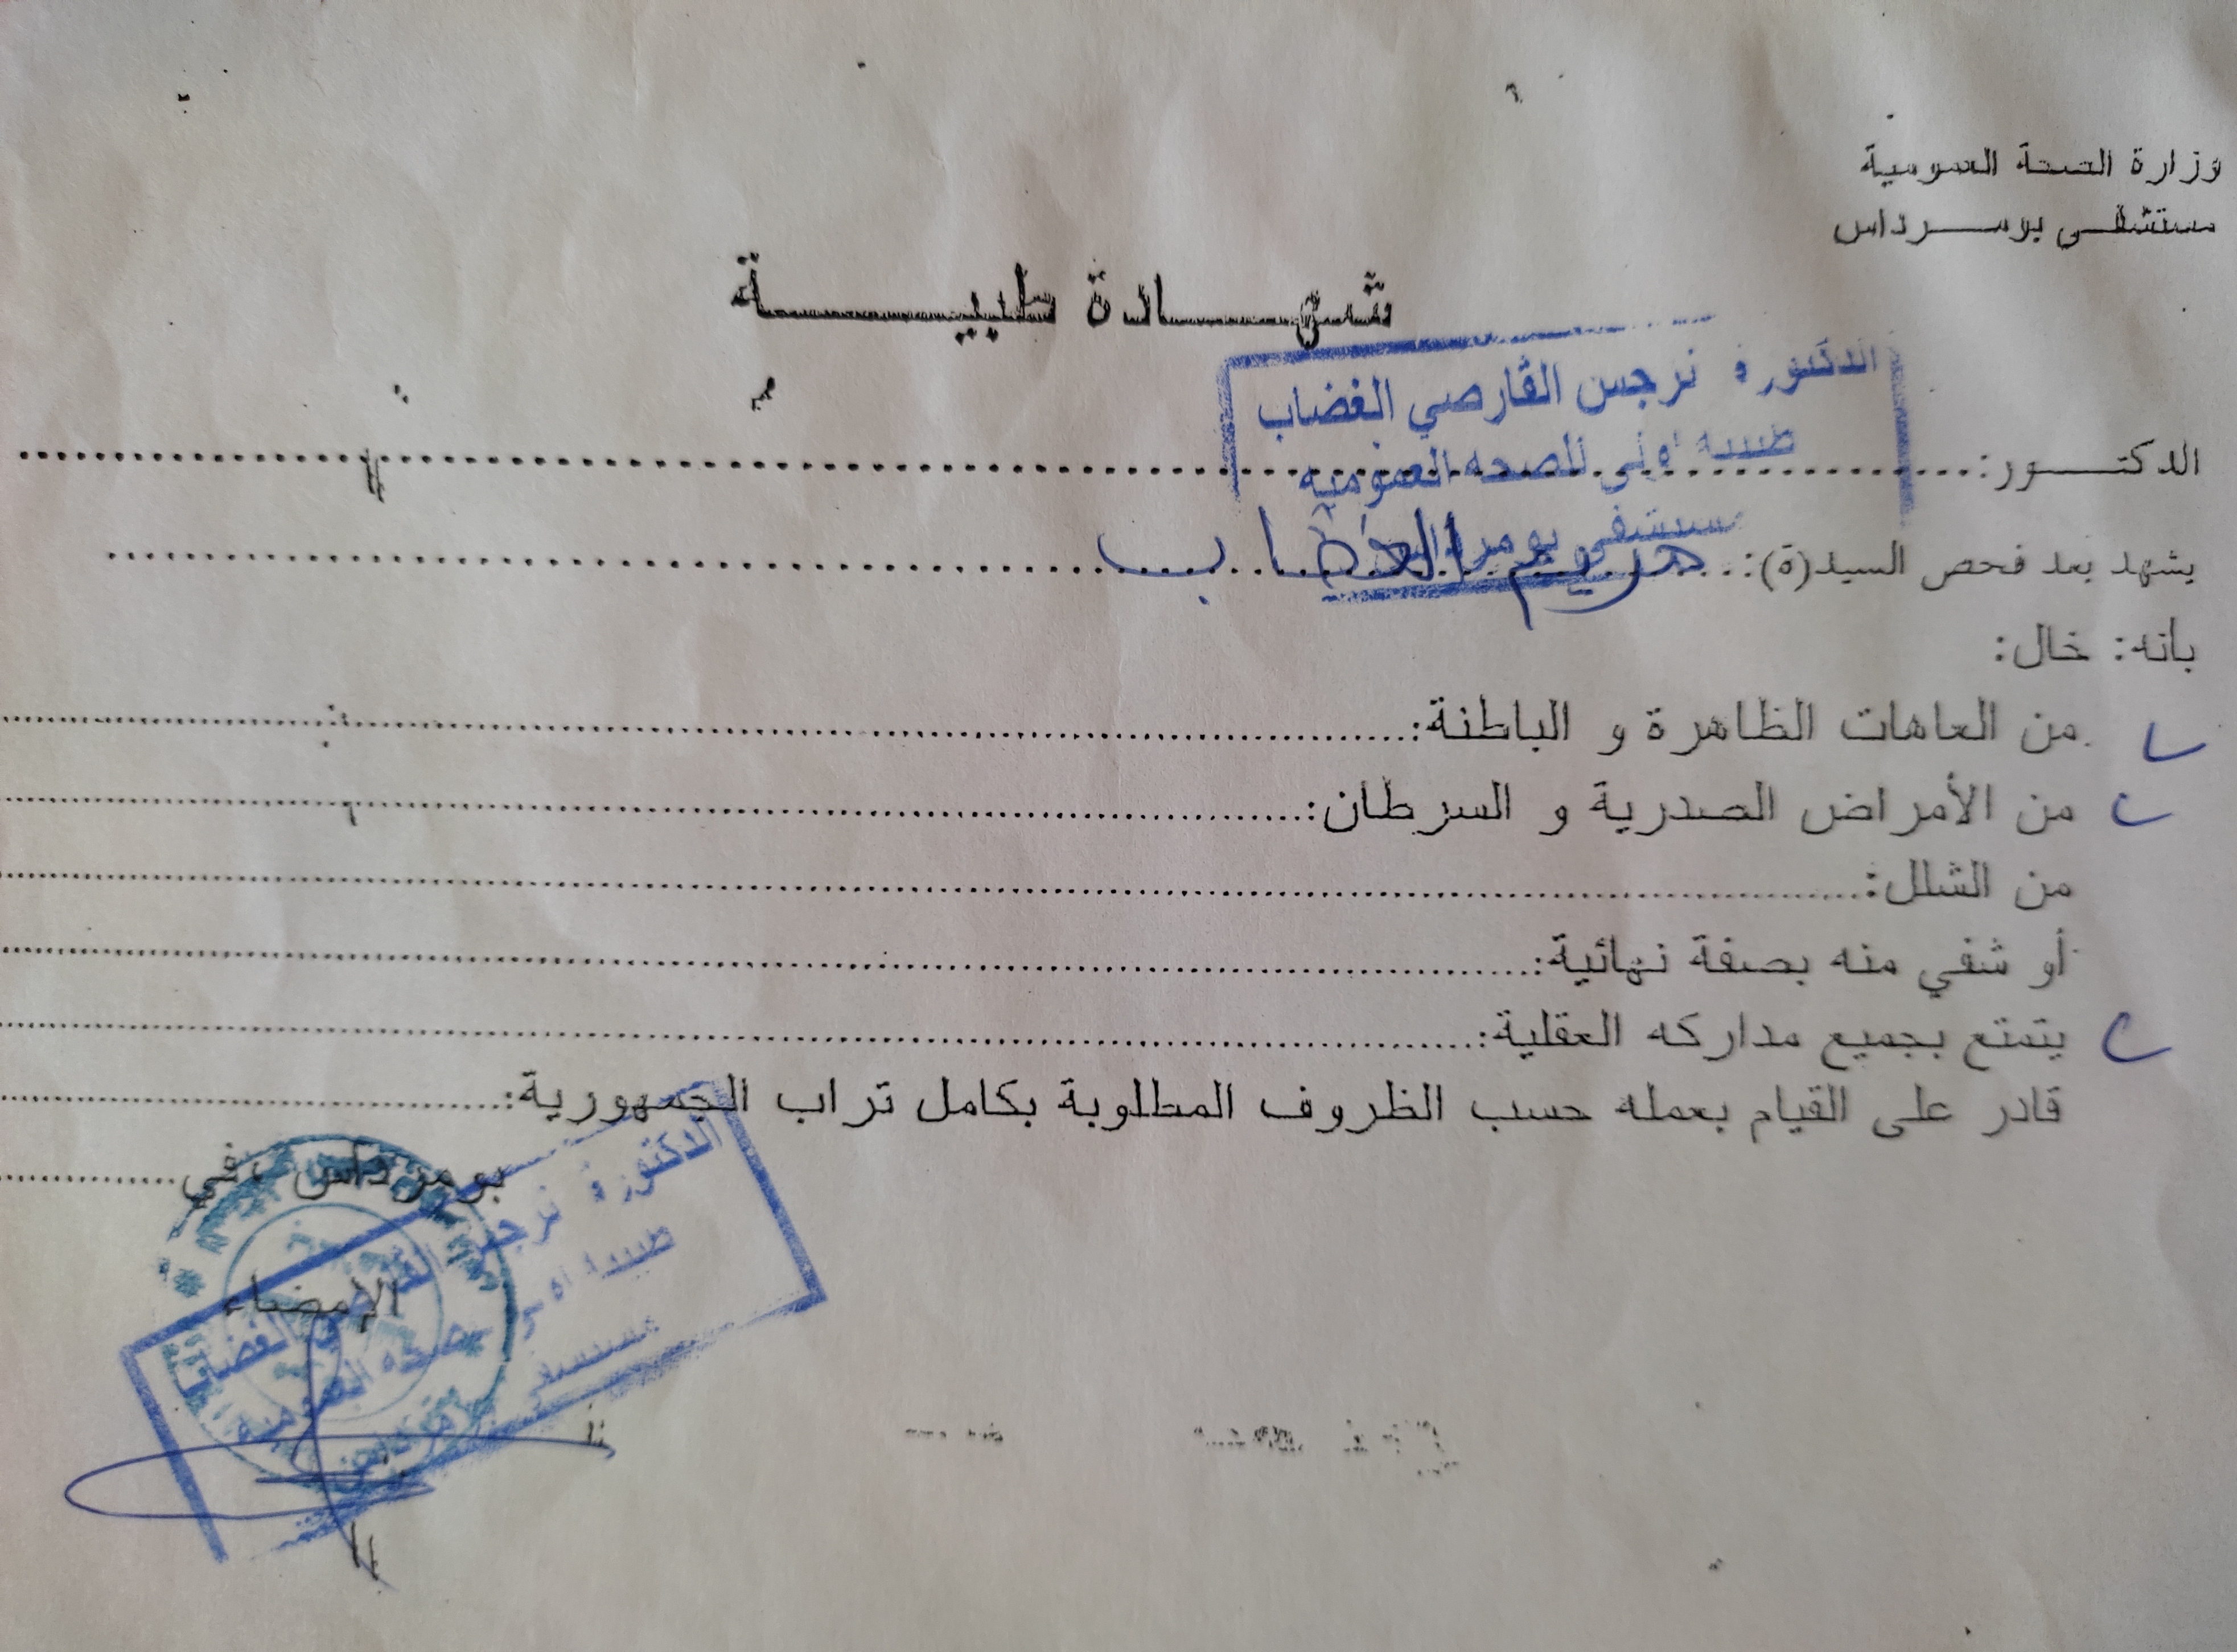 وزارة الصحة العمومية
مستشفى بومرداس
شهادة طبية
الدكتورة نرجس القارصي الغضاب
طبيبة اولى للصحة العمومية
مستشفى بومرداس
الدكتور:
يشهد بعد فحص السيد(ة): مريم الغضاب
بأنه: خال:
من العاهات الظاهرة و الباطنة:
من الأمراض الصدرية و السرطان:
من الشلل:
أو شفي منه بصفة نهائية:
يتمتع بجميع مداركه العقلية:
قادر على القيام بعمله حسب الظروف المطلوبة بكامل تراب الجمهورية:
بومرداس، في
الإمضاء
الدكتورة نرجس القارصي الغضاب
طبيبة اولى للصحة العمومية
مستشفى بومرداس